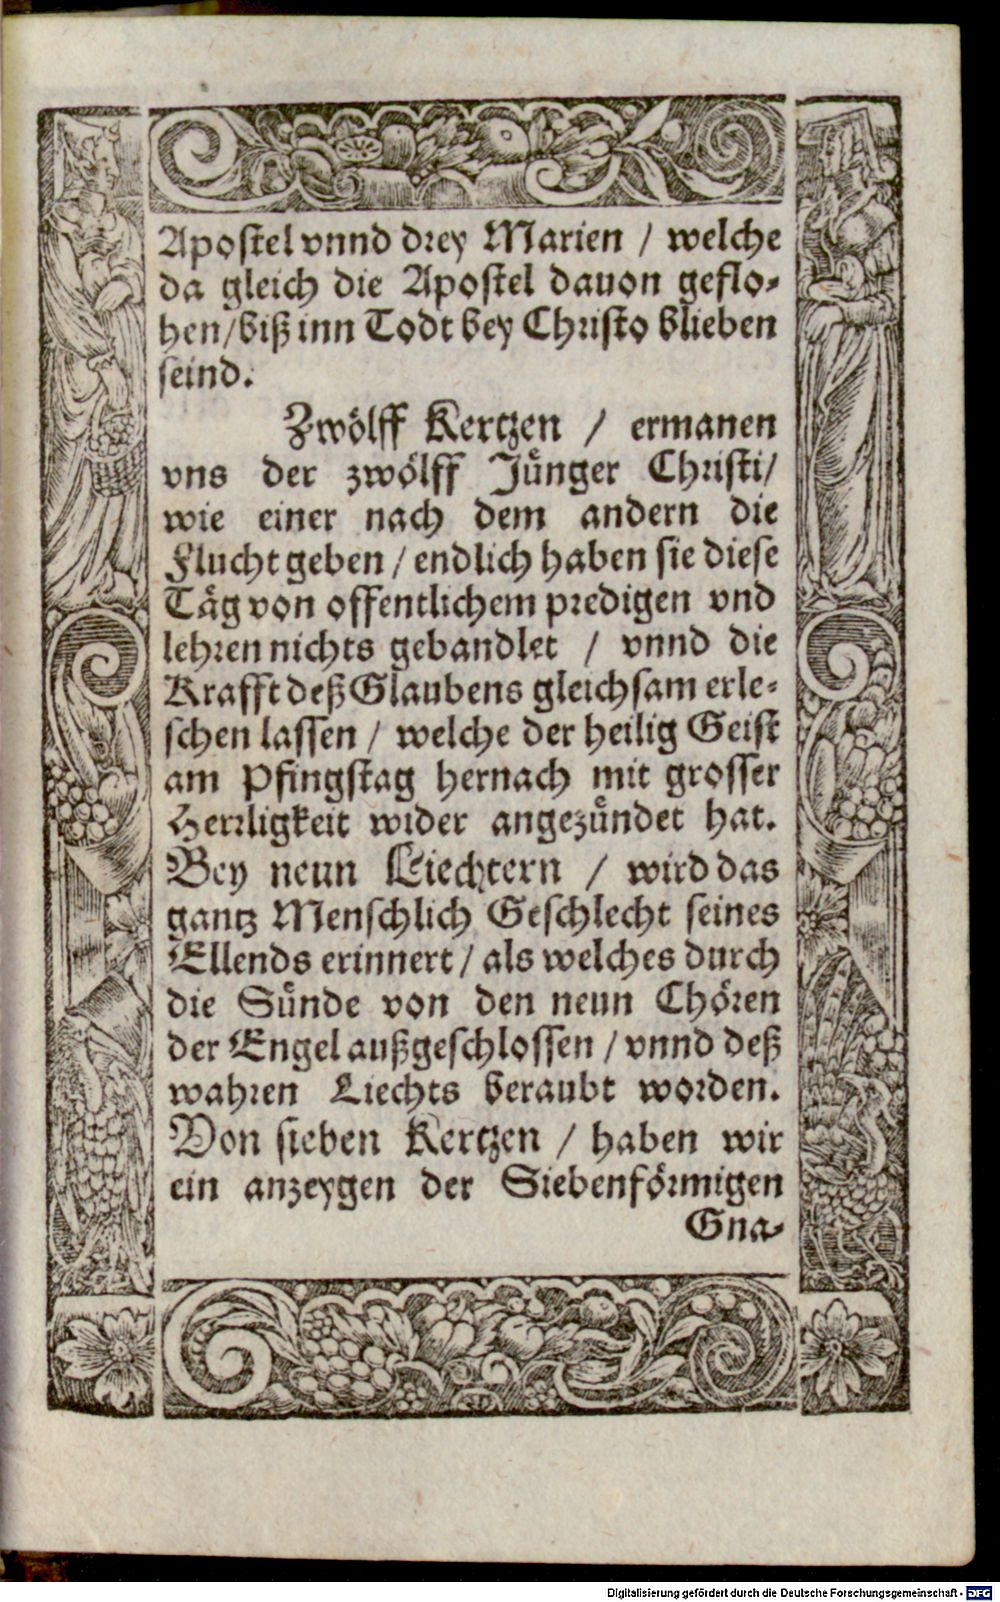 Apostel vnnd drey Marien / welche
da gleich die Apostel dauon geflo-
hen/biß inn Todt bey Christo blieben
seind.
Zwölff Kertzen / ermanen
vns der zwölff Jünger Christi/
wie einer nach dem andern die
Flucht geben / endlich haben sie diese
Täg von offentlichem predigen vnd
lehren nichts gehandlet / vnnd die
Krafft deß Glaubens gleichsam erle-
schen lassen / welche der heilig Geist
am Pfingstag hernach mit grosser
Herrligkeit wider angezündet hat.
Bey neun Liechtern / wird das
gantz Menschlich Geschlecht seines
Ellends erinnert / als welches durch
die Sünde von den neun Chören
der Engel außgeschlossen / vnnd deß
wahren Liechts beraubt worden.
Von sieben Kertzen / haben wir
ein anzeygen der Siebenförmigen
Gna-
Digitalisierung gefördert durch die Deutsche Forschungsgemeinschaft - DFG